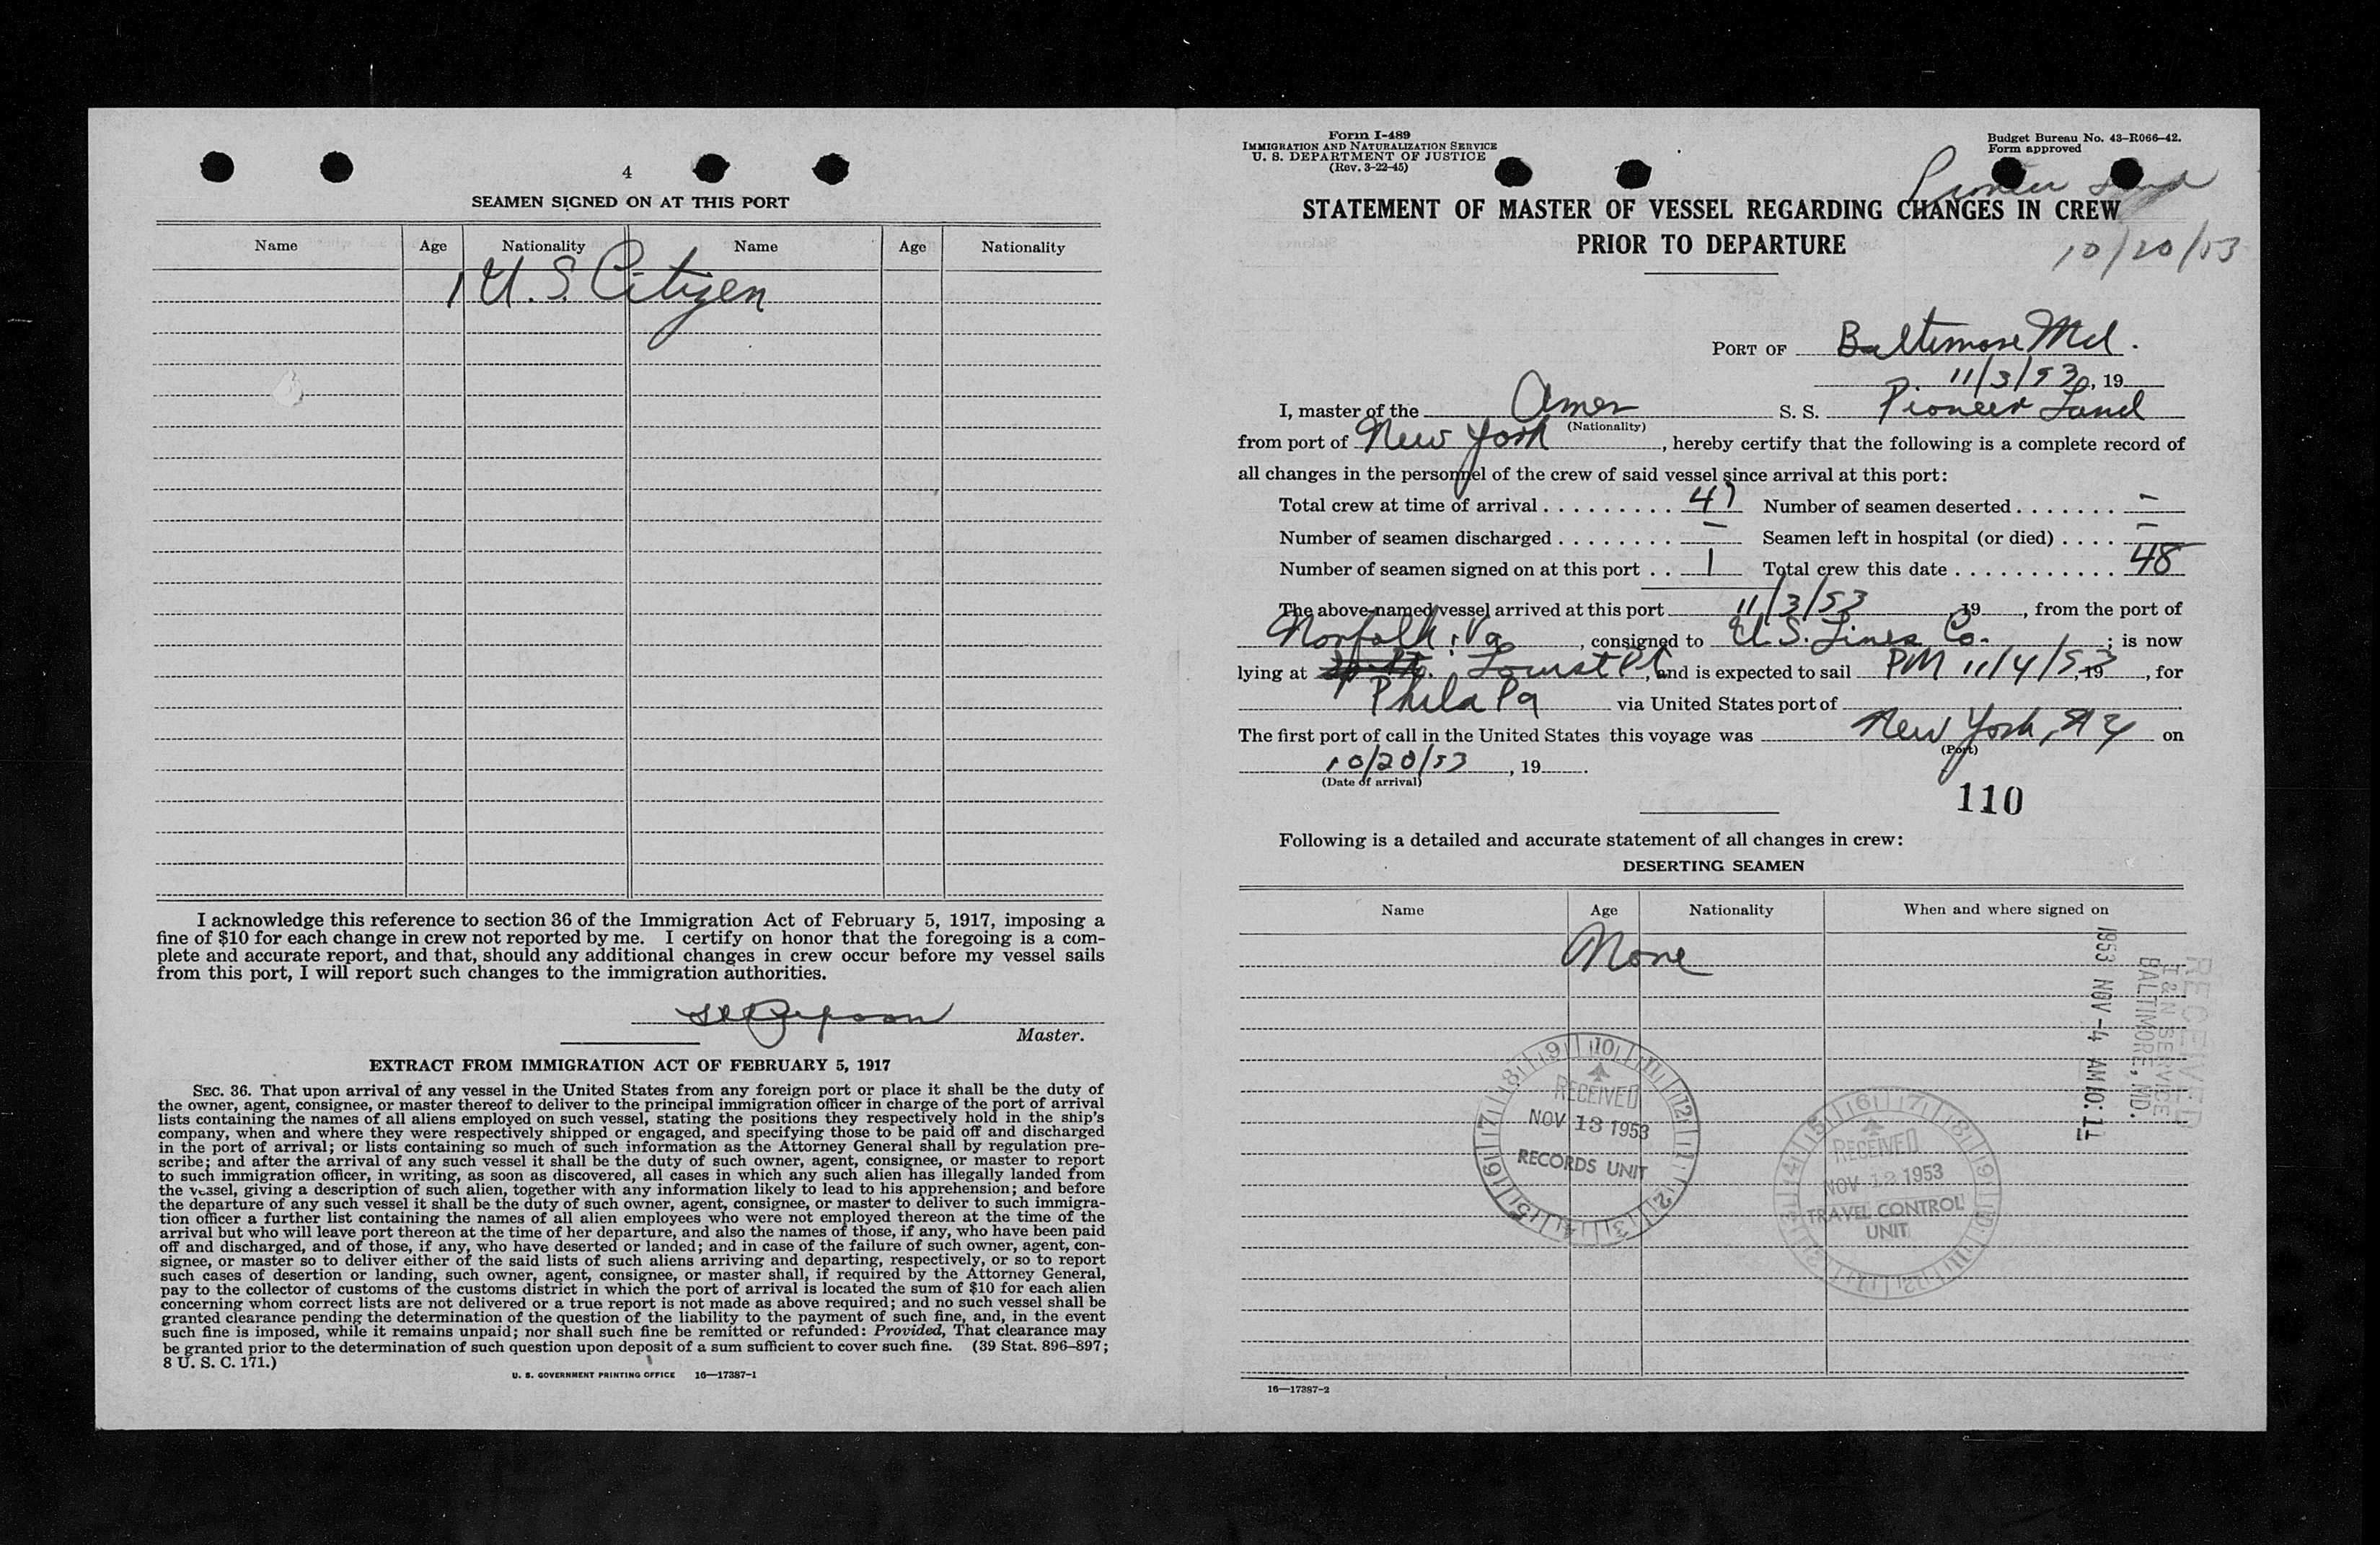 4
SEAMEN SIGNED ON AT THIS PORT
Name Age Nationality Name Age Nationality
1 U.S. Citizen
I acknowledge this reference to section 36 of the Immigration Act of February 5, 1917, imposing a
fine of $10 for each change in crew not reported by me. I certify on honor that the foregoing is a com-
plete and accurate report, and that, should any additional changes in crew occur before my vessel sails
from this port, I will report such changes to the immigration authorities.
Master.
EXTRACT FROM IMMIGRATION ACT OF FEBRUARY 5, 1917
SEC. 36. That upon arrival of any vessel in the United States from any foreign port or place it shall be the duty of
the owner, agent, consignee, or master thereof to deliver to the principal immigration officer in charge of the port of arrival
lists containing the names of all aliens employed on such vessel, stating the positions they respectively hold in the ship's
company, when and where they were respectively shipped or engaged, and specifying those to be paid off and discharged
in the port of arrival; or lists containing so much of such information as the Attorney General shall by regulation pre-
scribe; and after the arrival of any such vessel it shall be the duty of such owner, agent, consignee, or master to report
to such immigration officer, in writing, as soon as discovered, all cases in which any such alien has illegally landed from
the vessel, giving a description of such alien, together with any information likely to lead to his apprehension; and before
the departure of any such vessel it shall be the duty of such owner, agent, consignee, or master to deliver to such immigra-
tion officer a further list containing the names of all alien employees who were not employed thereon at the time of the
arrival but who will leave port thereon at the time of her departure, and also the names of those, if any, who have been paid
off and discharged, and of those, if any, who have deserted or landed; and in case of the failure of such owner, agent, con-
signee, or master so to deliver either of the said lists of such aliens arriving and departing, respectively, or so to report
such cases of desertion or landing, such owner, agent, consignee, or master shall, if required by the Attorney General,
pay to the collector of customs of the customs district in which the port of arrival is located the sum of $10 for each alien
concerning whom correct lists are not delivered or a true report is not made as above required; and no such vessel shall be
granted clearance pending the determination of the question of the liability to the payment of such fine, and, in the event
such fine is imposed, while it remains unpaid; nor shall such fine be remitted or refunded: Provided, That clearance may
be granted prior to the determination of such question upon deposit of a sum sufficient to cover such fine. (39 Stat. 896-897;
8 U. S. C. 171.)
U. S. GOVERNMENT PRINTING OFFICE 16—17387-1
Form I-489
IMMIGRATION AND NATURALIZATION SERVICE
U. S. DEPARTMENT OF JUSTICE
(Rev. 3-22-45)
Budget Bureau No. 43-R066-42.
Form approved
Pioneer Land
STATEMENT OF MASTER OF VESSEL REGARDING CHANGES IN CREW
PRIOR TO DEPARTURE
10/20/53
PORT OF Baltimore Md.
11/3/53, 19
I, master of the Amer S. S. Pioneer Land
(Nationality)
from port of New York, hereby certify that the following is a complete record of
all changes in the personnel of the crew of said vessel since arrival at this port:
Total crew at time of arrival . . . . . . . . . 47 Number of seamen deserted . . . . . . . -
Number of seamen discharged . . . . . . . . - Seamen left in hospital (or died) . . . . -
Number of seamen signed on at this port . . 1 Total crew this date . . . . . . . . . . . . 48
The above-named vessel arrived at this port 11/3/53, 19, from the port of
Norfolk, Va, consigned to U.S. Lines Co.; is now
lying at Locust Pt, and is expected to sail PM 11/4/53, 19, for
Phila Pa via United States port of
The first port of call in the United States this voyage was New York, NY on
(Port)
10/20/53, 19.
(Date of arrival)
110
Following is a detailed and accurate statement of all changes in crew:
DESERTING SEAMEN
Name Age Nationality When and where signed on
None
RECEIVED
I & N SERVICE
BALTIMORE, MD.
1953 NOV -4 AM 10:11
RECEIVED
NOV 13 1953
RECORDS UNIT
RECEIVED
NOV 12 1953
TRAVEL CONTROL
UNIT
16—17387-2